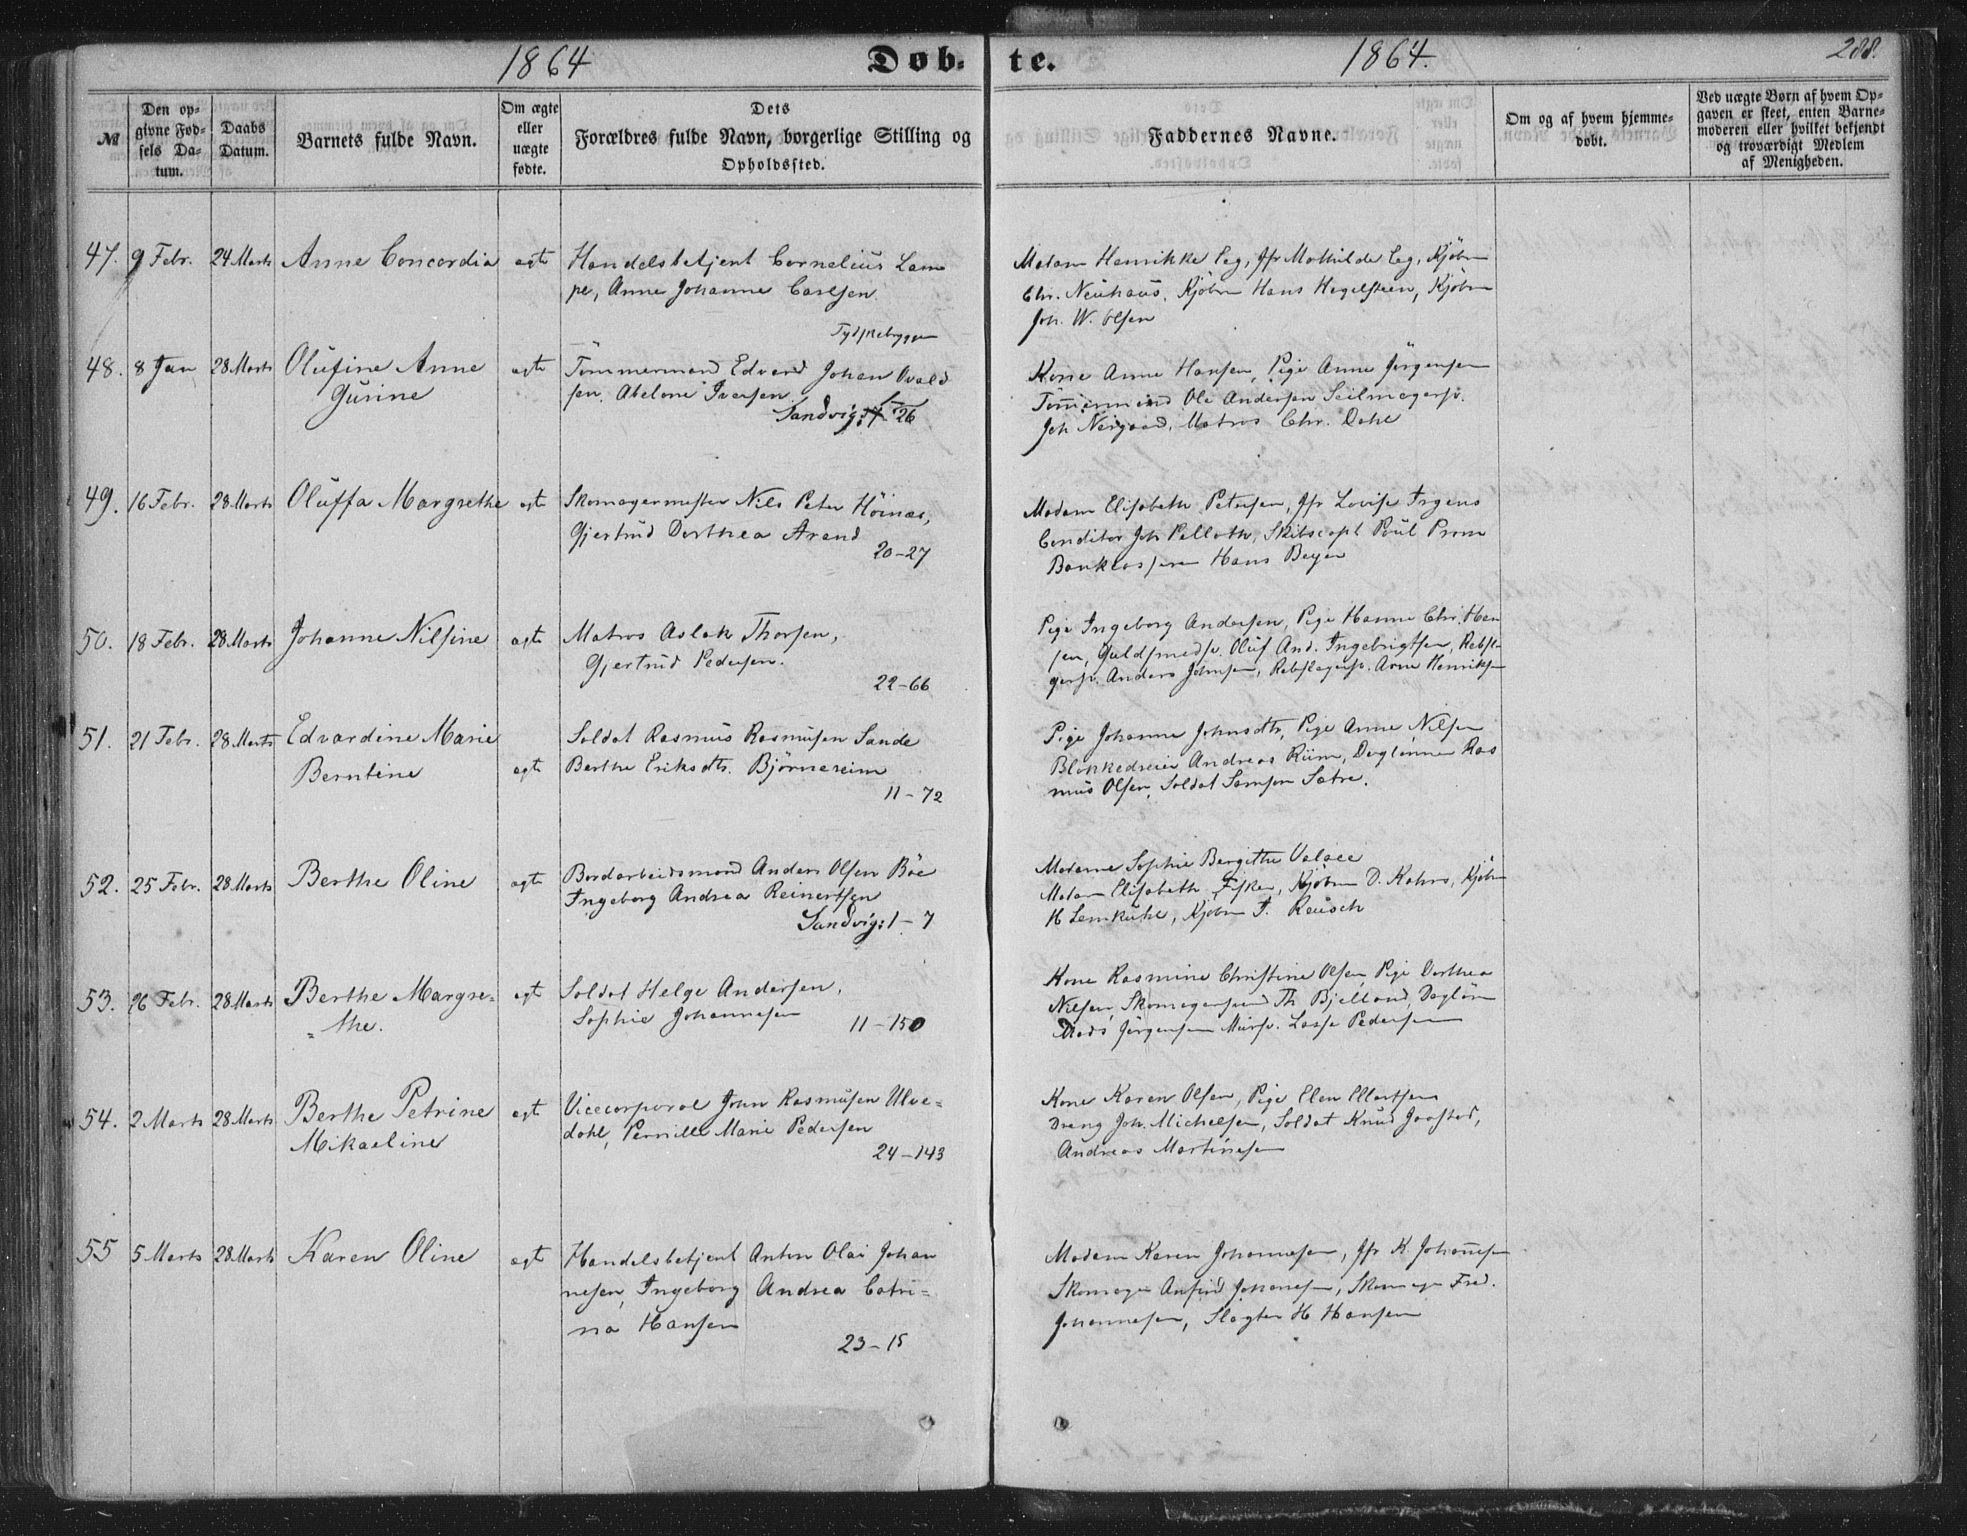 1864 Døb- te. 1864. 288.
№
Den opgivne Fødsels Datum.
Daabs Datum.
Barnets fulde Navn.
Om ægte eller uægte fødte.
Dets
Forældres fulde Navn, borgerlige Stilling og
Opholdssted.
Faddernes Navne.
Om og af hvem hjemmedøbt.
Ved uægte Børn af hvem Opgaven er skeet, enten Barnemoderen eller hvilket bekjendt og troværdigt Medlem af Menigheden.
47. 9 Febr. 24 Marts Anne Concordia ægte Handelsbetjent Cornelius Lam
pe, Anne Johanne Carlsen
Tydskebryggen
Madam Henrikke Eeg, Jfr Mathilde Eeg, Kjøbm
Chr. Neuhaus, Kjøbm Hans Hegelsteen, Kjøbm
Joh. W. Olsen
48. 8 Jan 28 Marts Olufine Anne ægte Tömmermand Edvard Johan Ovald
Gurine sen, Abelone Iversen.
Sandvig: 26
Kone Anne Hansen, Pige Anne Jörgensen
Tömmermand Ole Andersen Seilmagersv.
Joh Nergaard, Matros Chr. Dahl
49. 16 Febr. 28 Marts Oluffa Margrethe egt Skomagermester Nils Peter Höinæs,
Gjertrud Dorthea Arend
20-27
Madam Elisabeth Petersen, Jfr Lovise Irgens
Conditor Joh Pelloth, Skibscapt Poul Prom
Hans Beyer
50. 18 Febr. 28 Marts Johanne Nilsine ægte Matros Aslak Thorsen,
Gjertrud Pedersen.
22-66
Pige Ingeborg Andersen, Pige Hanne Chr. Han
sen, Guldsmedsv. Oluf And. Ingebrigtsen, Rebsl-
gersv. Anders Johnsen, Rebslagersv. Arne Henriksen
51. 21 Febr. 28 Marts Edvardine Marie Soldat Rasmus Rasmusen Sande
Berntine egte Berthe Eriksdtr. Björnereim
11-72
Pige Johanne Johnsdtr, Pige Anne Nilsen
Blokkedreier Andreas Riim, Daglönner Ras
mus Olsen, Soldat Samson Sætre.
52. 25 Febr. 28 Marts Berthe Oline egte Bordarbeidsmand Anders Olsen Böe
Ingeborg Andrea Reinertsen
Sandvig: 1-7
Madame Sophie Bergithe
Madam Elisabeth Fisker, Kjøbm D. Kahrs, Kjøbm
H Lemkuhl, Kjøbm F. Reusch
53. 26 Febr. 28 Marts Berthe Margre- egt Soldat Helge Andersen,
the. Sophie Johannesen
11-150
Kone Rasmine Christine Olsen, Pige Dorthea
Nilsen, Skomagersvend Th Bjelland, Daglön
Mads Jörgensen Mursv. Lasse Pedersen
54. 2 Marts 28 Marts Berthe Petrine egt Vicecorporal John Rasmusen Ulve-
Mikaeline dahl, Pernille Marie Pedersen
24-143
Kone Karen Olsen, Pige Elen Ellertsen
Dreng Joh. Michelsen, Soldat Knud
Andreas Martinesen
55 5 Marts 28 Marts Karen Oline egt Handelsbetjent Anton Olai Johan
nesen, Ingeborg Andrea Catri-
na Hansen
23-15
Madam Karen Johannesen, Jfr K. Johannesen
Skomager Anfind Johanesen, Skomager Fred.
Johannesen, Slagter H Hansen